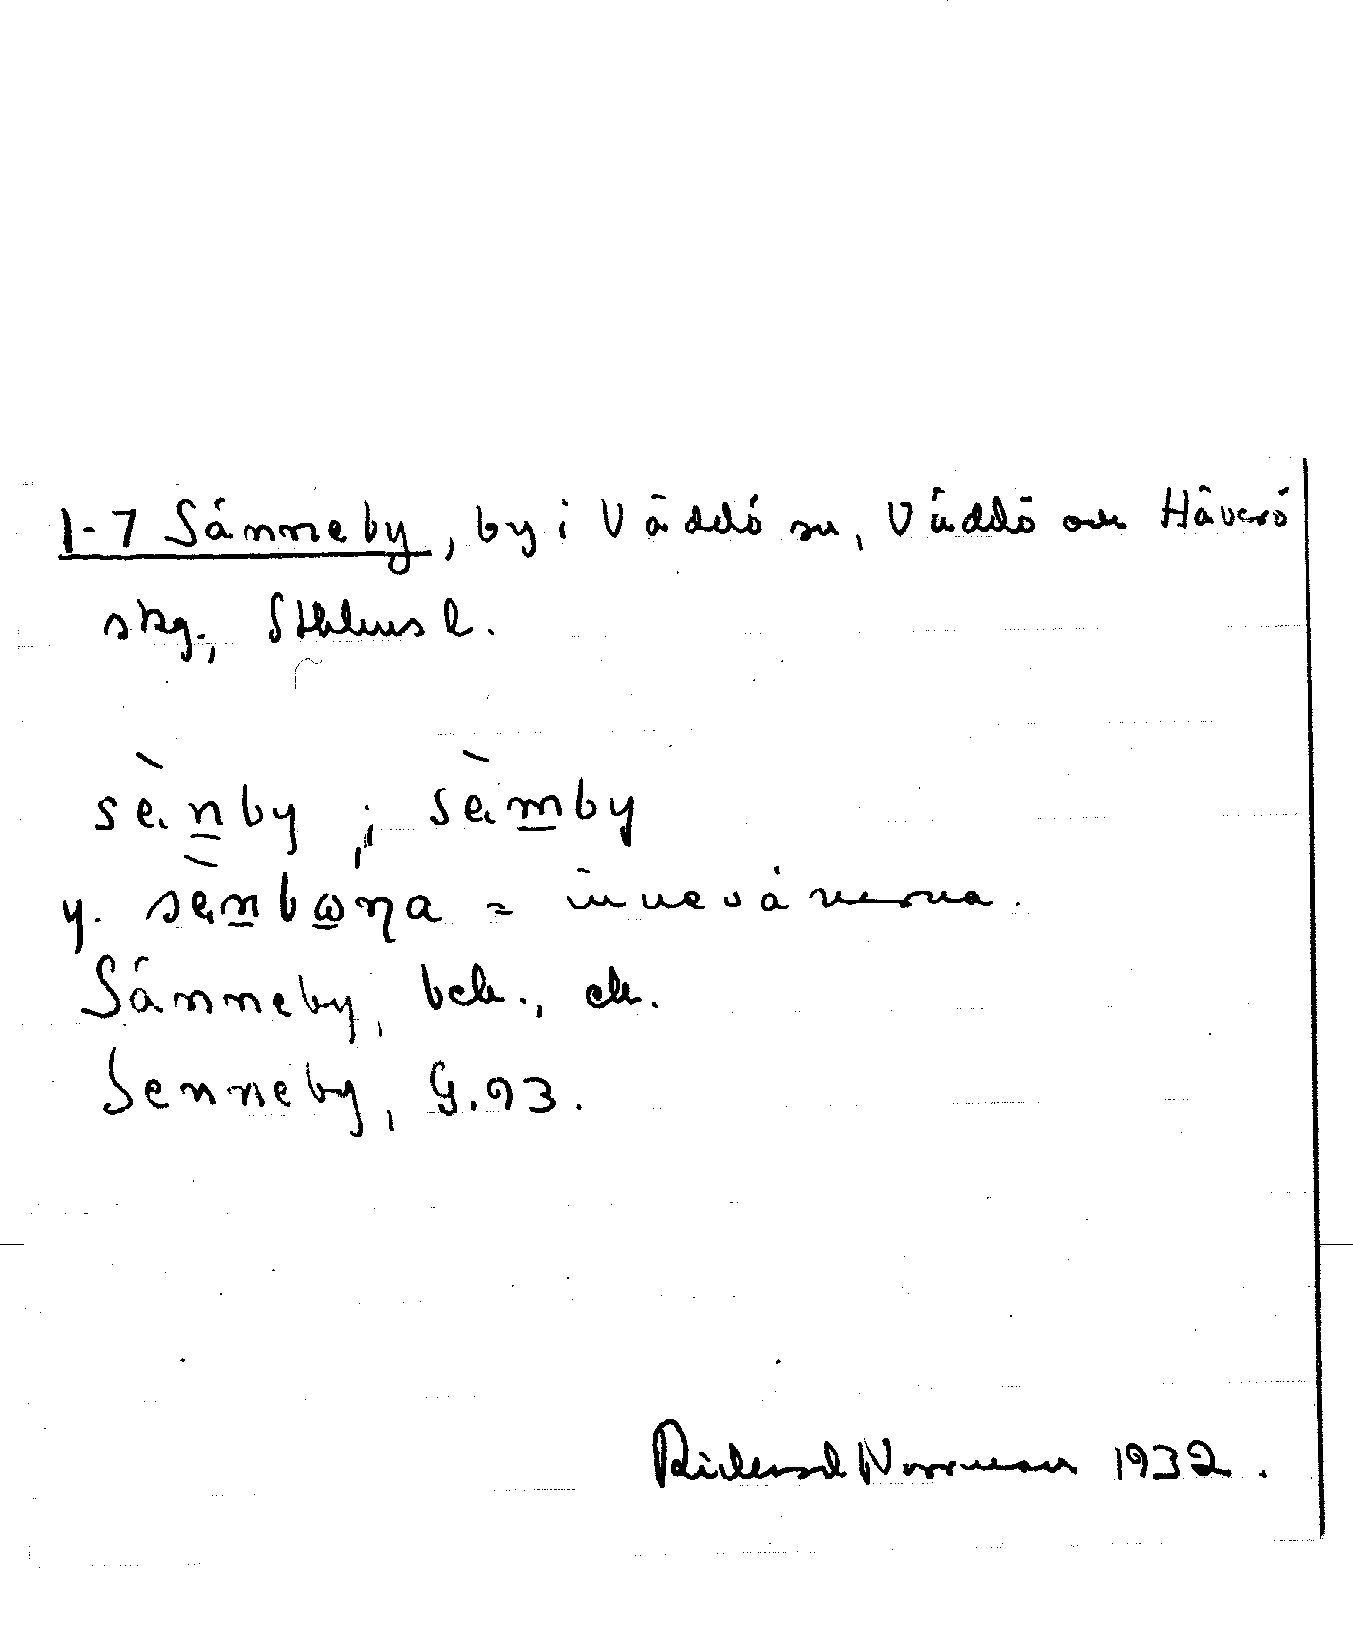 1-7 Sänneby, by i Väddö sn, Väddö och Häverö
skg., Sthlms l.
sènby ; sèmby
y. sènboηa = innevånarna.
Sänneby, bck., ek.
Senneby, G.93.
Rickard Norrman 1932.